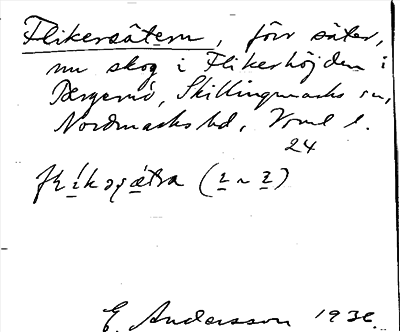 Flikersätern, förr säter,
nu skog i Flikerhöjden i
Skillingmarks sn,
Nordmarks hd, Vrml l.
24
E. Andersson 193